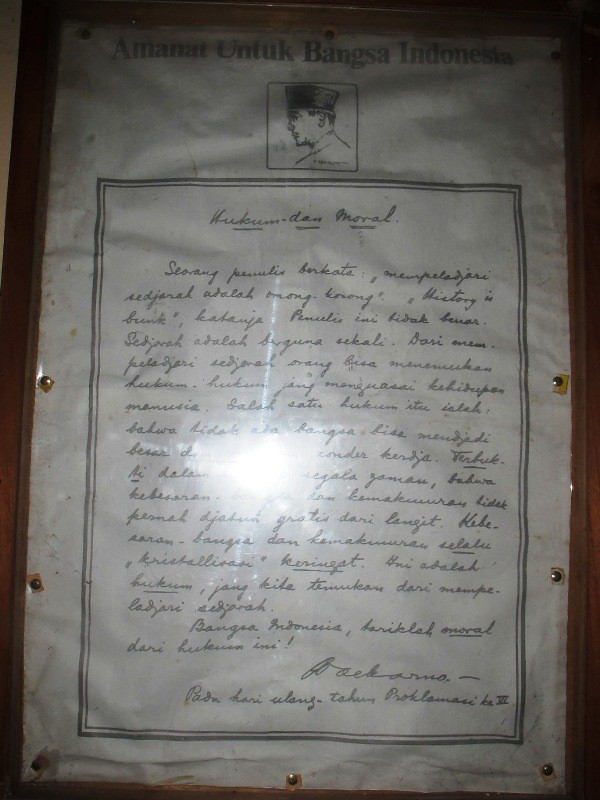 Amanat Untuk Bangsa Indonesia
Hukum-dan Moral.
Seorang penulis berkata: „mempeladjari
sedjarah adalah omong-kosong". „History is
bunk", katanja. Penulis ini tidak benar.
Sedjarah adalah berguna sekali. Dari mem-
peladjari sedjarah orang bisa menemukan
hukum-hukum jang menguasai kehidupan
manusia. Salah satu hukum itu ialah:
bahwa tidak ada bangsa bisa mendjadi
besar zonder kerdja. Terbuk-
ti dalam segala zaman, bahwa
kebesaran- dan kemakmuran tidak
pernah djatuh gratis dari langit. Kebe-
saran-bangsa dan kemakmuran selalu
„kristallisasi" keringat. Ini adalah
hukum, jang kita temukan dari mempe-
ladjari sedjarah.
Bangsa Indonesia, tariklah moral
dari hukum ini!
Soekarno.-
Pada hari ulang-tahun Proklamasi ke VI